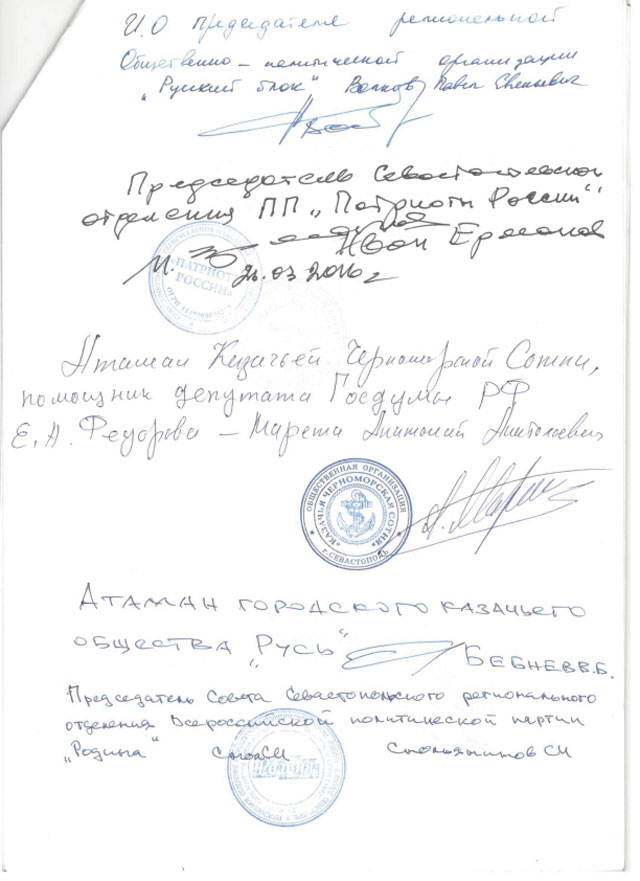 И.О председателя региональной
Общественно-политической организации
"Русский блок" Волков Павел Евгеньевич
Председатель Севастопольского
отделения ПП "Патриоты России"
Иван Ермаков
М.
28.03 2016 г
"ПАТРИОТЫ
РОССИИ"
Атаман Казачьей Черноморской Сотни,
помощник депутата Госдумы РФ
Е.А. Федорова – Марета Анатолий Анатольевич
ОБЩЕСТВЕННАЯ ОРГАНИЗАЦИЯ
"КАЗАЧЬЯ ЧЕРНОМОРСКАЯ СОТНЯ"
г. СЕВАСТОПОЛЬ
Атаман городского казачьего
общества "Русь"
Бебнев В.Б.
Председатель Совета Севастопольского регионального
отделения Всероссийской политической партии
"Родина" СМ